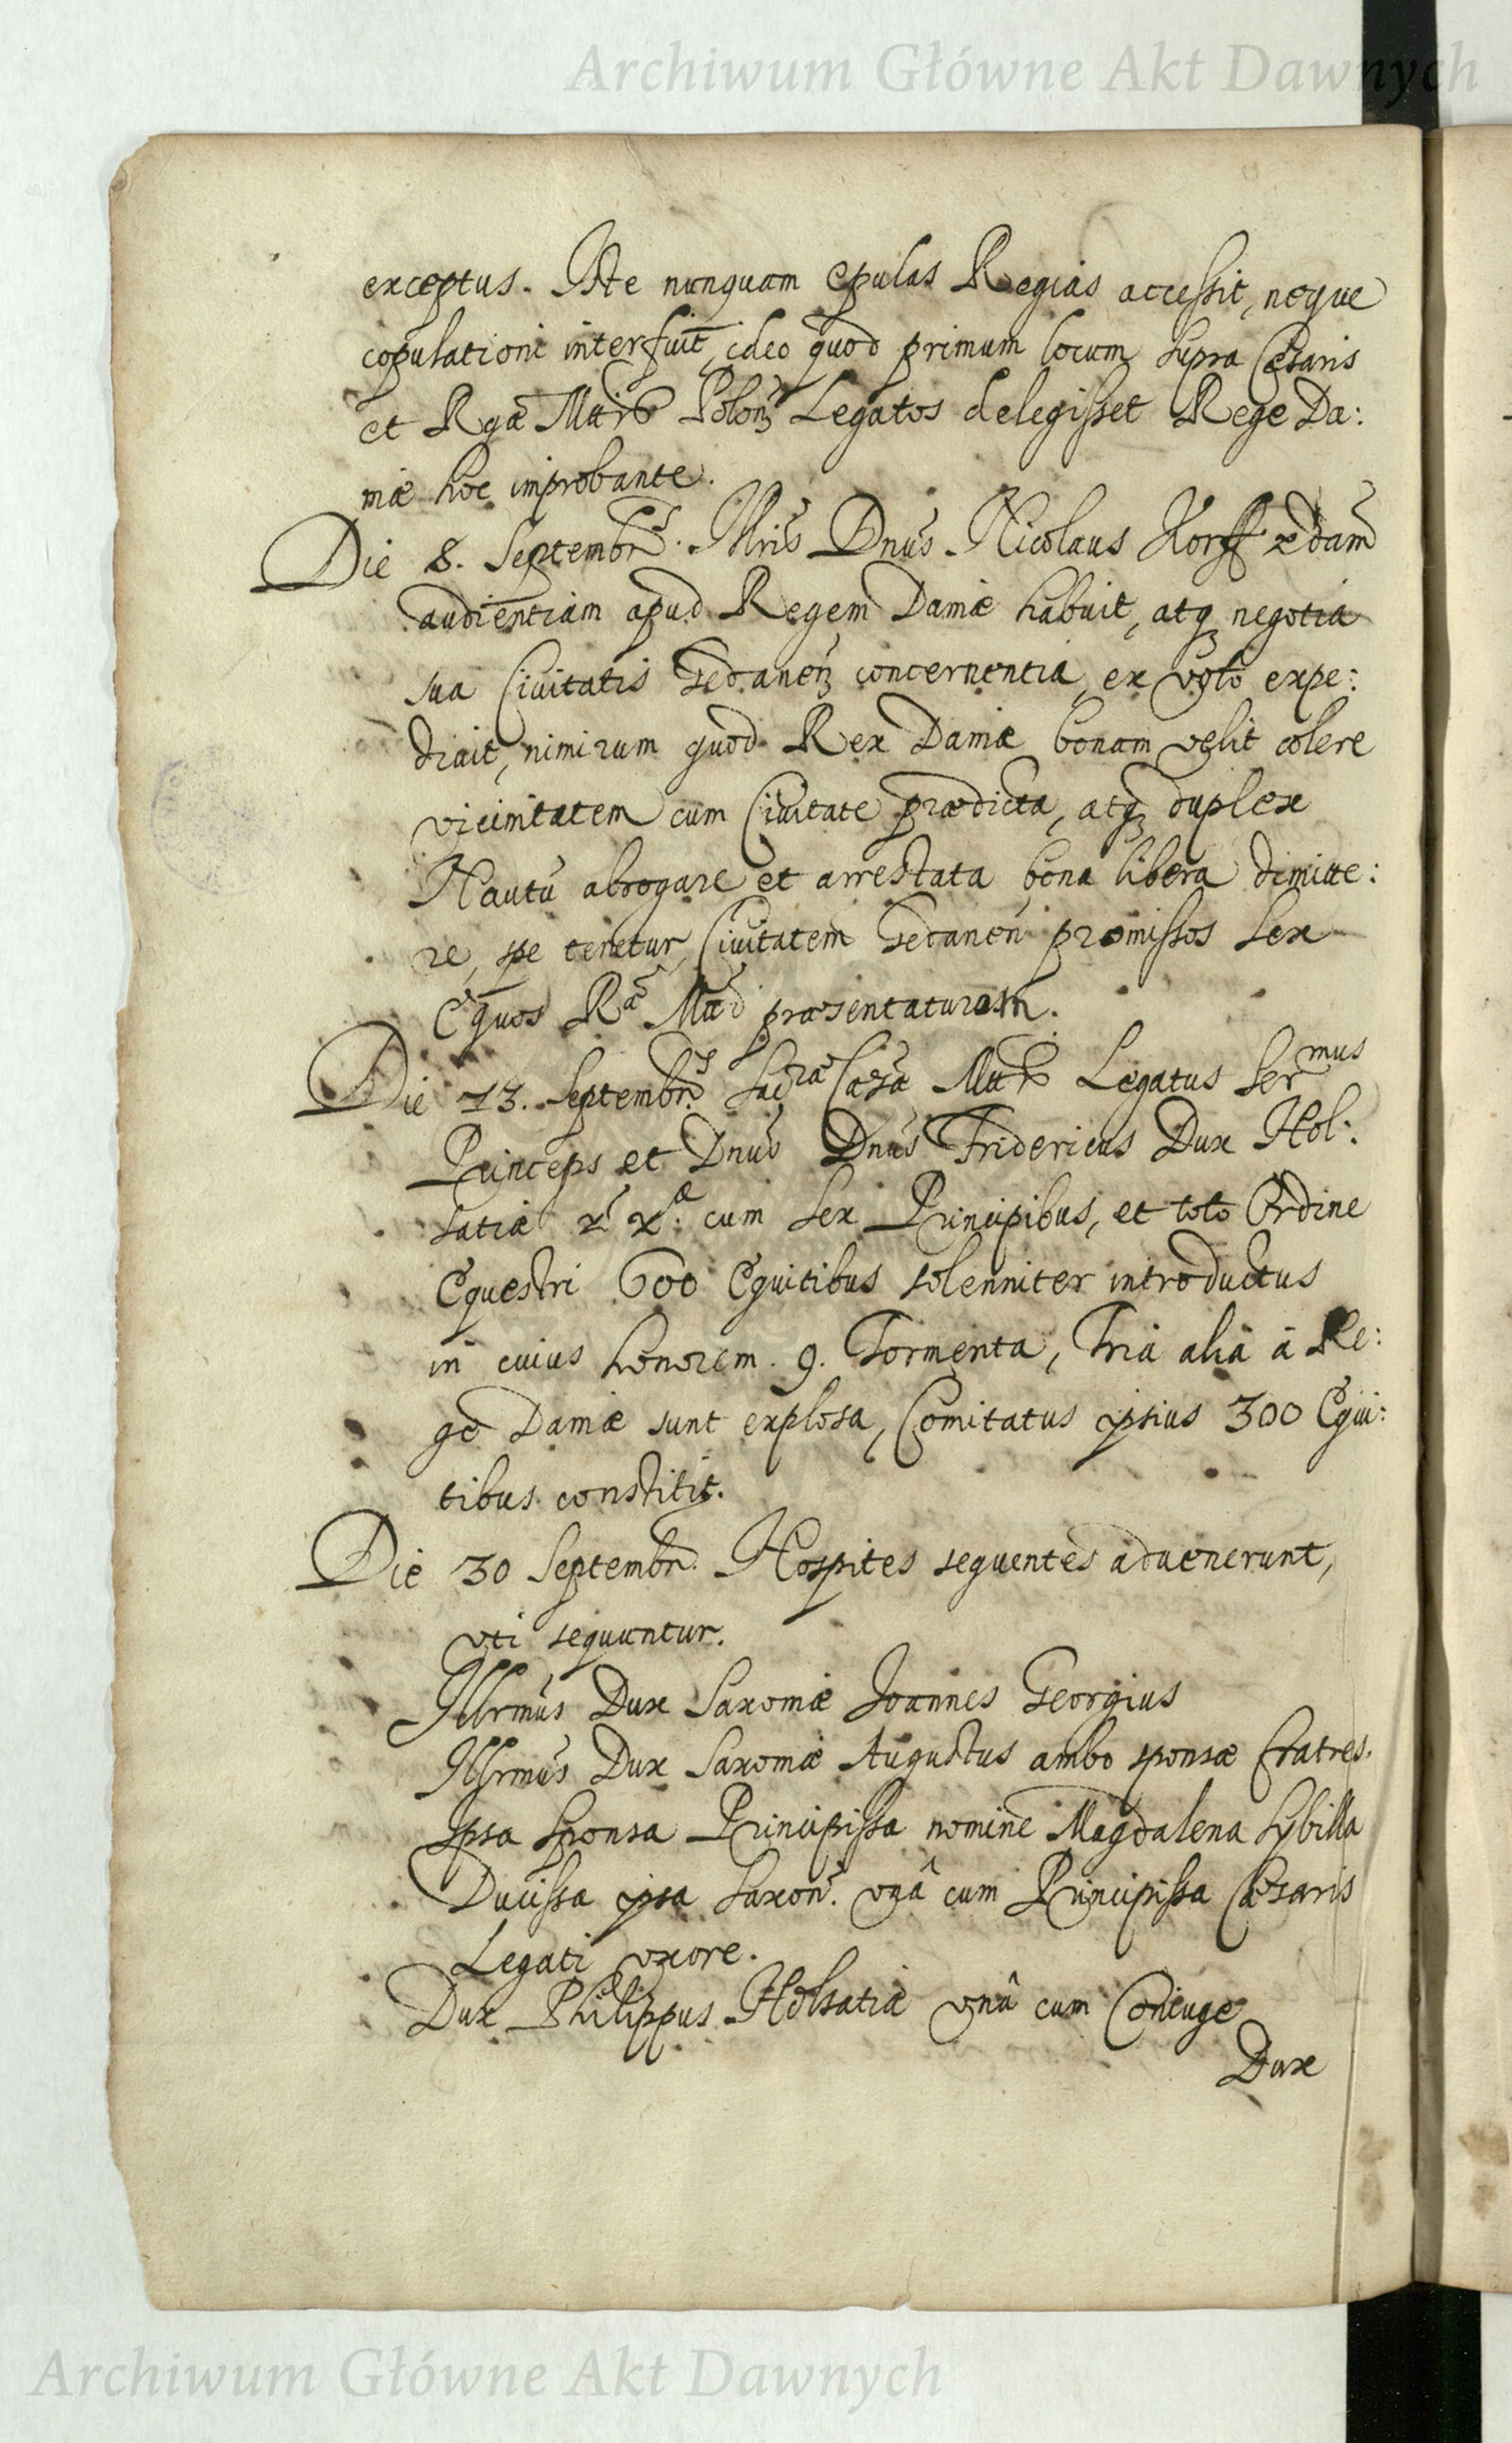 Archiwum Główne Akt Dawnych
exceptus. Iste nunquam epulas Regias accessit, neque
copulationi interfuit, ideo quod primum locum supra Cæsaris
et Rgæ Mtis Polon Legatos delegisset Rege Da:
niæ hoc improbante.
Die 8. Septembr. Illris Dnus Nicolaus Korff 2dam
audientiam apud Regem Daniæ habuit, atq negotia
sua Ciuitatis Gedanen concernentia, ex voto expe:
diait, nimirum quod Rex Daniæ bonam velit colere
vicinitatem cum Ciuitate prædicta, atq duplex
Nautū abrogare et arrestata bona libera dimitte:
re, spe tenetur, Ciuitatem Gedanen promissos sex
Equos Ræ Mtti præsentaturam.
Die 13. Septembr. Sacræ Cæsæ Mttis Legatus Sermus
Princeps et Dnus Dnus Fridericus Dux Hol:
satiæ cum sex Principibus, et toto Ordine
Equestri 600 Equitibus solenniter introductus
in cuius honorem. 9. Tormenta, Tria alia à Re:
ge Daniæ sunt explosa, Comitatus ipsius 300 Equi:
tibus constitit.
Die 30 Septembr. Hospites sequentes aduenerunt,
vti sequuntur.
Illrmus Dux Saxoniæ Joannes Georgius
Illrmus Dux Saxoniæ Augustus ambo sponsæ fratres.
Ipsa Sponsa Principissa nomine Magdalena Sybilla
Ducissa ipsa Saxon. vnâ cum Principissa Cæsaris
Legati vxore.
Dux Philippus Holsatiæ vnâ cum Coniuge
Dux
Archiwum Główne Akt Dawnych